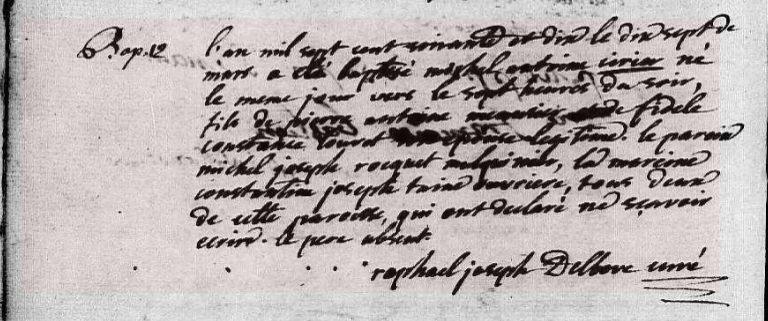 Bap. 12 l'an mil sept cent soixante et dix le dix sept de
mars a été baptisé michel antoine né
le meme jour vers le sept heures du soir,
fils de pierre antoine et de fidele
constance son epouse legitime. le parein
michel joseph rocquet mulquinier, la mareine
constantine joseph taine ouvriere, tous deux
de cette paroisse, qui ont declaré ne sçavoir
ecrire. le pere absent.
raphael joseph Delbove curé